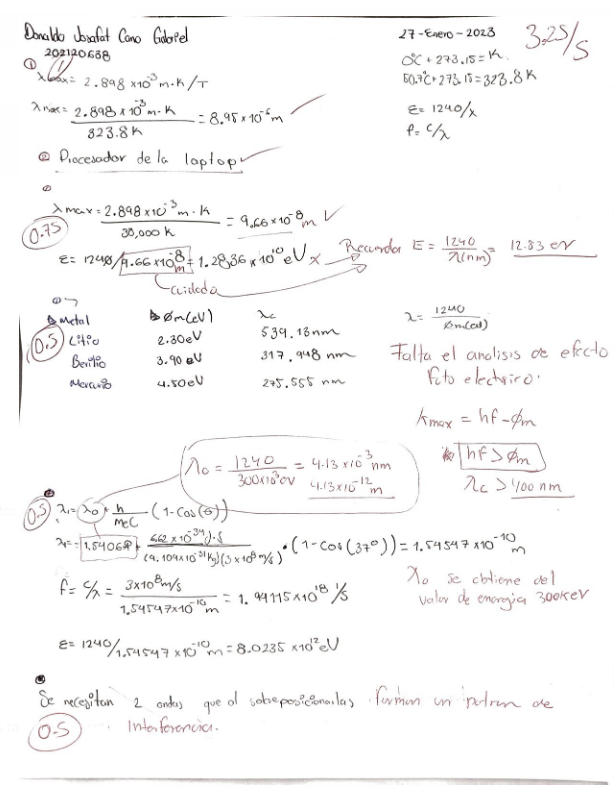 Donaldo Josafat Cano Gabriel
27-Enero-2023
3.25/5
202120638
0°C + 273.15 = K
① λmax = 2.898 x10⁻³ m·K/T
50.7°C + 273.15 = 323.8 K
λmax = 2.898 x10⁻³ m·K / 323.8 K = 8.95 x10⁻⁶ m
E = 1240/λ
f = c/λ
② Procesador de la laptop
λmax = 2.898 x10⁻³ m·K / 30,000 K = 9.66 x10⁻⁸ m
0.75
E = 1240/9.66 x10⁻⁸ m = 1.2836 x10¹⁰ eV x
Recuerda E = 1240/λ(nm) = 12.83 eV
Cuidado
Metal Øm(eV) λc
λ = 1240/Øm(eV)
0.5
Litio 2.30 eV 539.13 nm
Berilio 3.90 eV 317.948 nm
Mercurio 4.50 eV 275.555 nm
Falta el analisis de efecto
foto electrico.
Kmax = hf - Øm
hf > Øm
λc > 400 nm
λ0 = 1240/300x10³ eV = 4.13 x10⁻³ nm
4.13 x10⁻¹² m
0.5
λ1 = λ0 + h/meC (1 - Cos(θ))
λ1 = 1.5406Å + 6.62 x10⁻³⁴ J·S / (9.109x10⁻³¹ Kg)(3x10⁸ m/s) · (1 - Cos(37°)) = 1.54547 x10⁻¹⁰ m
f = c/λ = 3x10⁸ m/s / 1.54547x10⁻¹⁰ m = 1.94115 x10¹⁸ 1/S
λ0 se obtiene del
valor de energia 300 KeV
E = 1240/1.54547 x10⁻¹⁰ m = 8.0235 x10¹² eV
Se necesitan 2 ondas que al sobreposicionarlas forman un patron de
0.5
Interferencia.